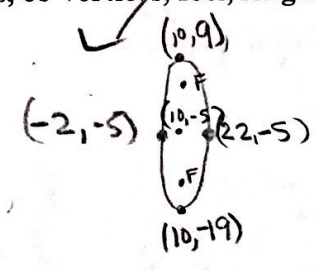 (10,9)
F
(-2,-5) (10,-5) (22,-5)
F
(10,-19)